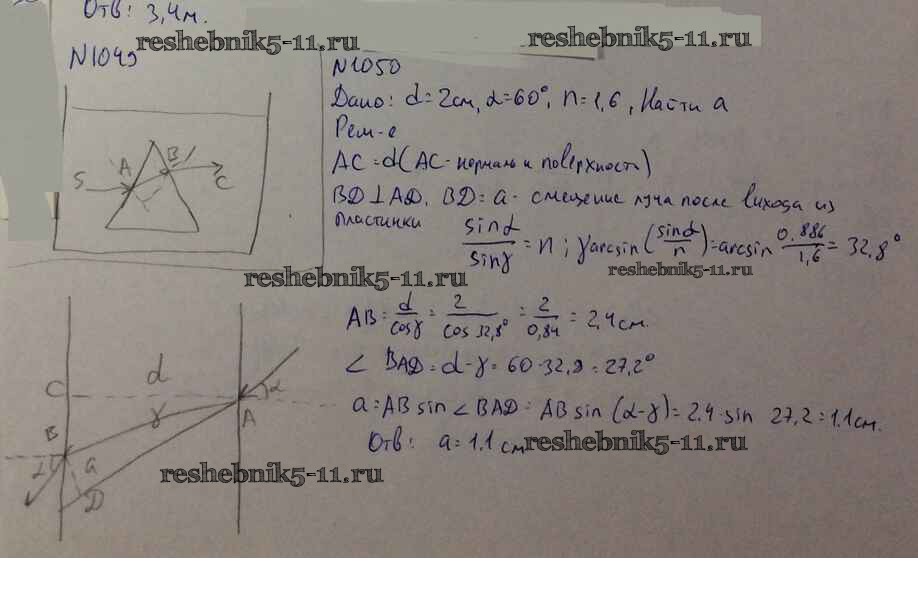 Отв: 3,4м.
N1049
reshebnik5-11.ru
reshebnik5-11.ru
A
B
S
C
N1050
Дано: d=2см, α=60°, n=1,6, Найти a
Реш-е
AC=d(AC-нормаль к поверхности)
BD⊥AD, BD=a- смещение луча после выхода из
пластинки
sinα/sinγ = n; γarcsin(sinα/n)=arcsin 0,886/1,6 = 32,8°
reshebnik5-11.ru
reshebnik5-11.ru
AB = d/cosγ = 2/cos 32,8° = 2/0,84 = 2,4см.
∠ BAD = α-γ = 60-32,8 = 27,2°
a=AB sin ∠BAD = AB sin (α-γ) = 2,4·sin 27,2 = 1.1см.
Отв: a=1.1 см
reshebnik5-11.ru
C
d
α
γ
A
B
α
a
D
reshebnik5-11.ru